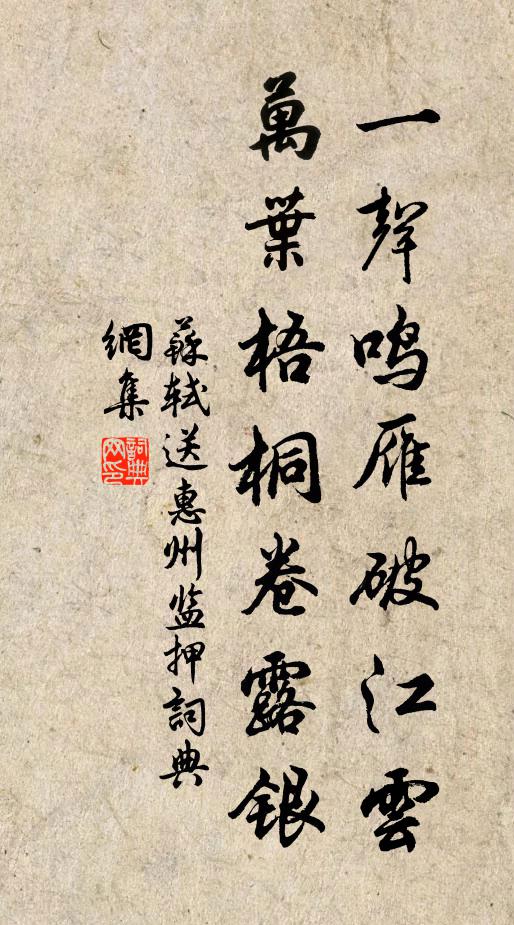 一聲鳴雁破江雲
萬葉梧桐卷露銀
蘇軾送惠州监押詞典
網集
詞典
网印